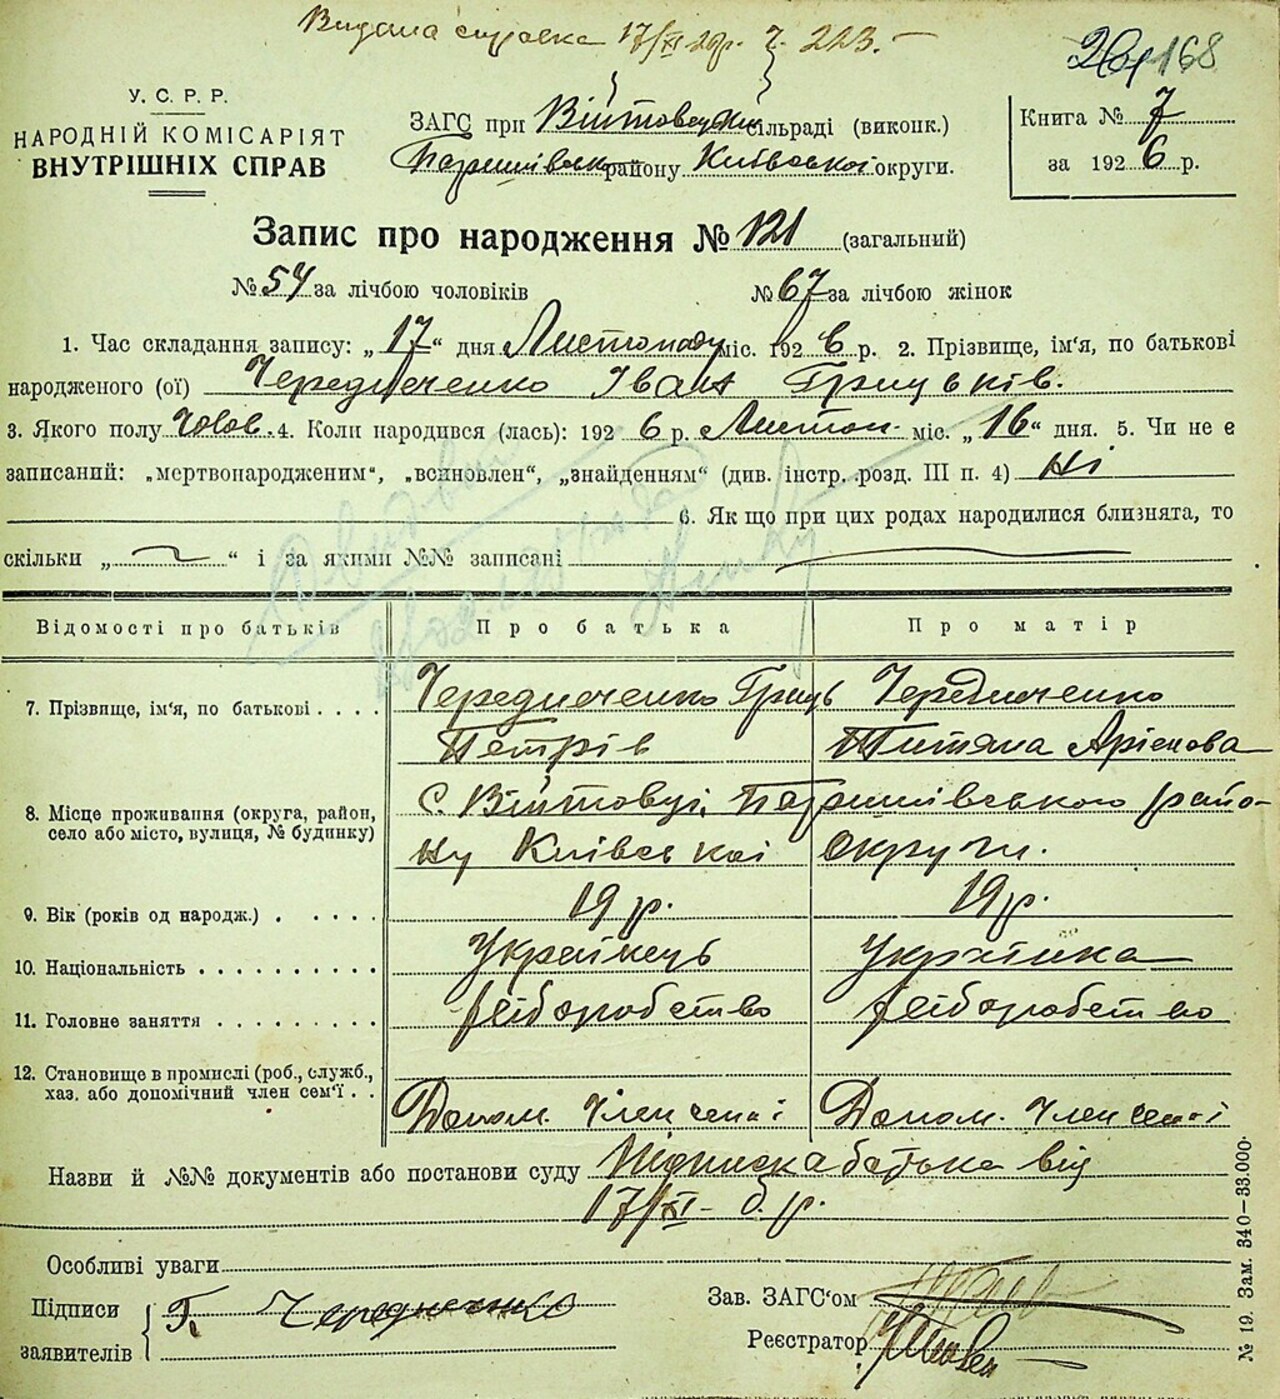 Видана справка 17/XI 29р. Ч. 223. —
168
У. С. Р. Р.
НАРОДНІЙ КОМІСАРІЯТ
ВНУТРІШНІХ СПРАВ
ЗАГС при Війтовецькій сільраді (виконк.)
Баришівськ району Київської округи.
Книга № 7
за 1926 р.
Запис про народження № 121 (загальний)
№ 54 за лічбою чоловіків № 67 за лічбою жінок
1. Час складання запису: „17“ дня Листопаду міс. 1926 р. 2. Прізвище, ім'я, по батькові
народженого (ої) Чередниченко Іван Грицьків.
3. Якого полу Чолов. 4. Коли народився (лась): 1926 р. Листоп. міс. „16“ дня. 5. Чи не є
записаний: „мертвонародженим“, „всиновлен“, „знайденням“ (див. інстр. розд. III п. 4) Ні
6. Як що при цих родах народилися близнята, то
скільки „ “ і за якими №№ записані
Відомості про батьків Про батька Про матір
7. Прізвище, ім'я, по батькові . . . . Чередниченко Гриць Чередниченко
Петрів Титяна
8. Місце проживання (округа, район,
село або місто, вулиця, № будинку)
С. Війтовці, Баришівського райо-
ну Київської Округи.
9. Вік (років од народж.) . . . . . 19 р. 19 р.
10. Національність . . . . . . . . . . Українець Українка
11. Головне заняття . . . . . . . . . Хліборобство Хліборобство
12. Становище в промислі (роб., служб.,
хаз. або допомічний член сем'ї . .
Допом. член семї Допом. член семї
Назви й №№ документів або постанови суду Підписка батька від
17/XI – б. р.
Особливі уваги
Підписи
заявителів
Г. Чередниченко
Зав. ЗАГС'ом
Реєстратор
№ 19. Зам. 340—33.000.